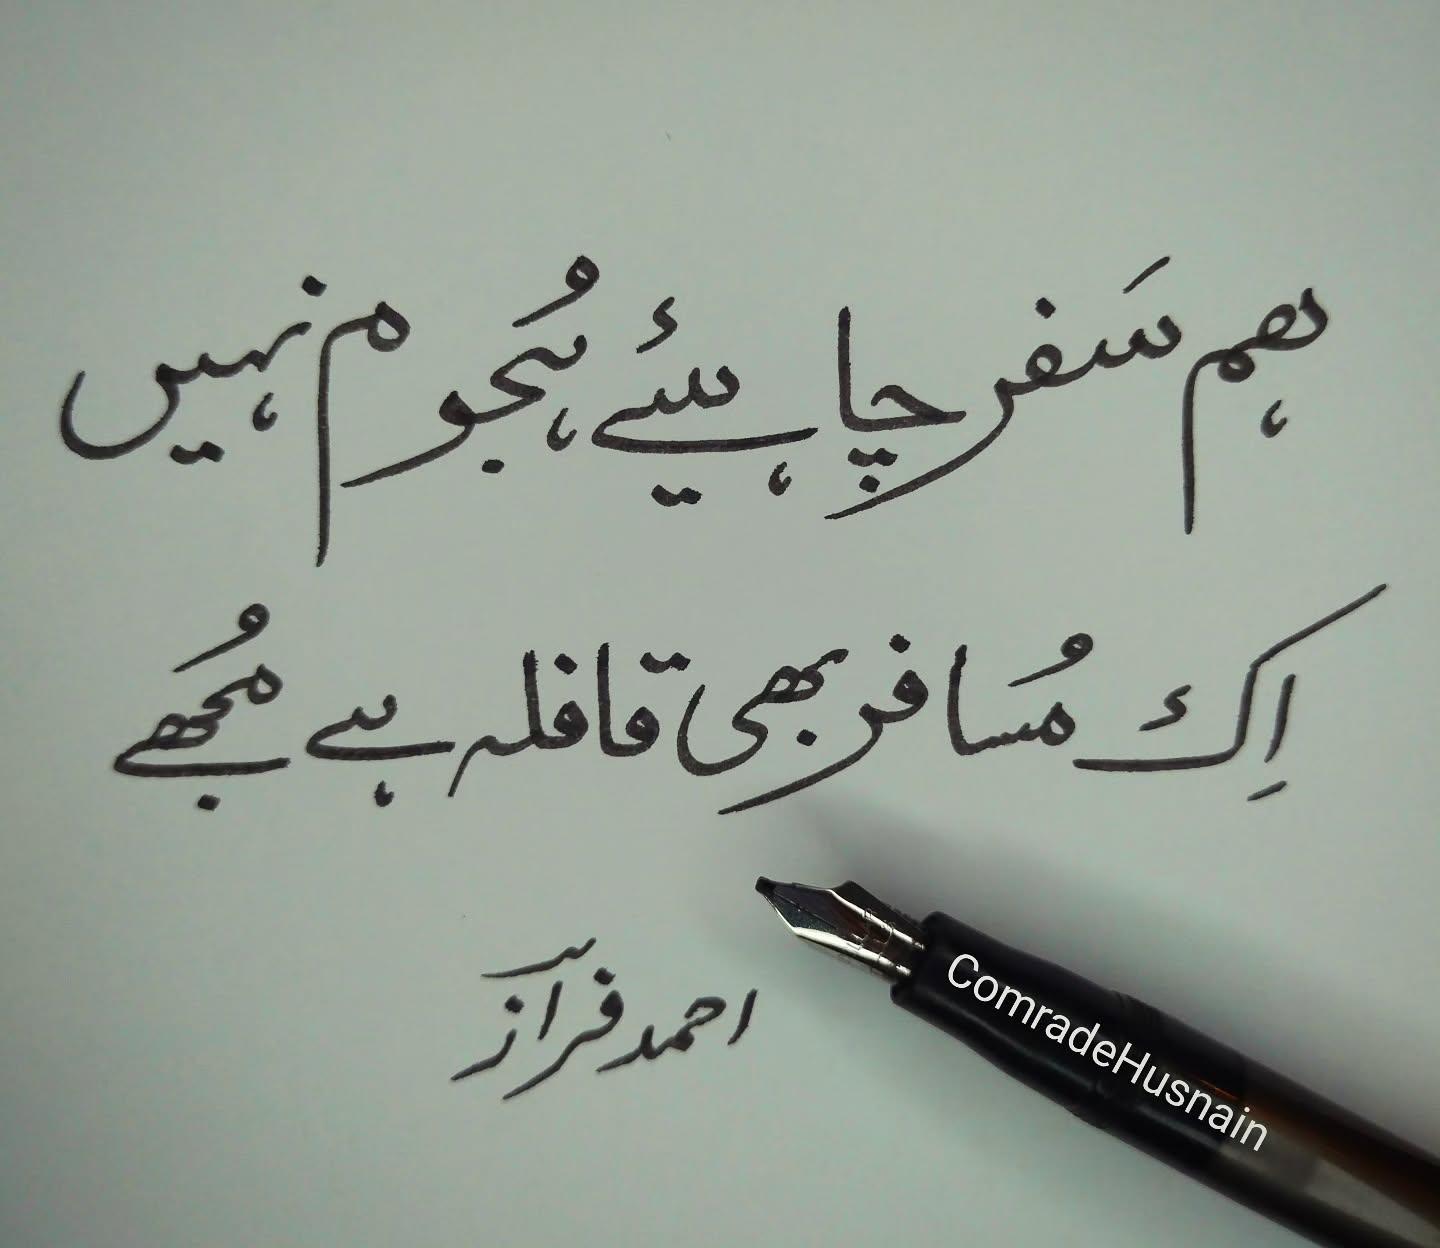 ہم سَفر چاہیئے ہُجوم نہیں
اِک مُسافر بھی قافلہ ہے مُجھے
احمد فراز
ComradeHusnain